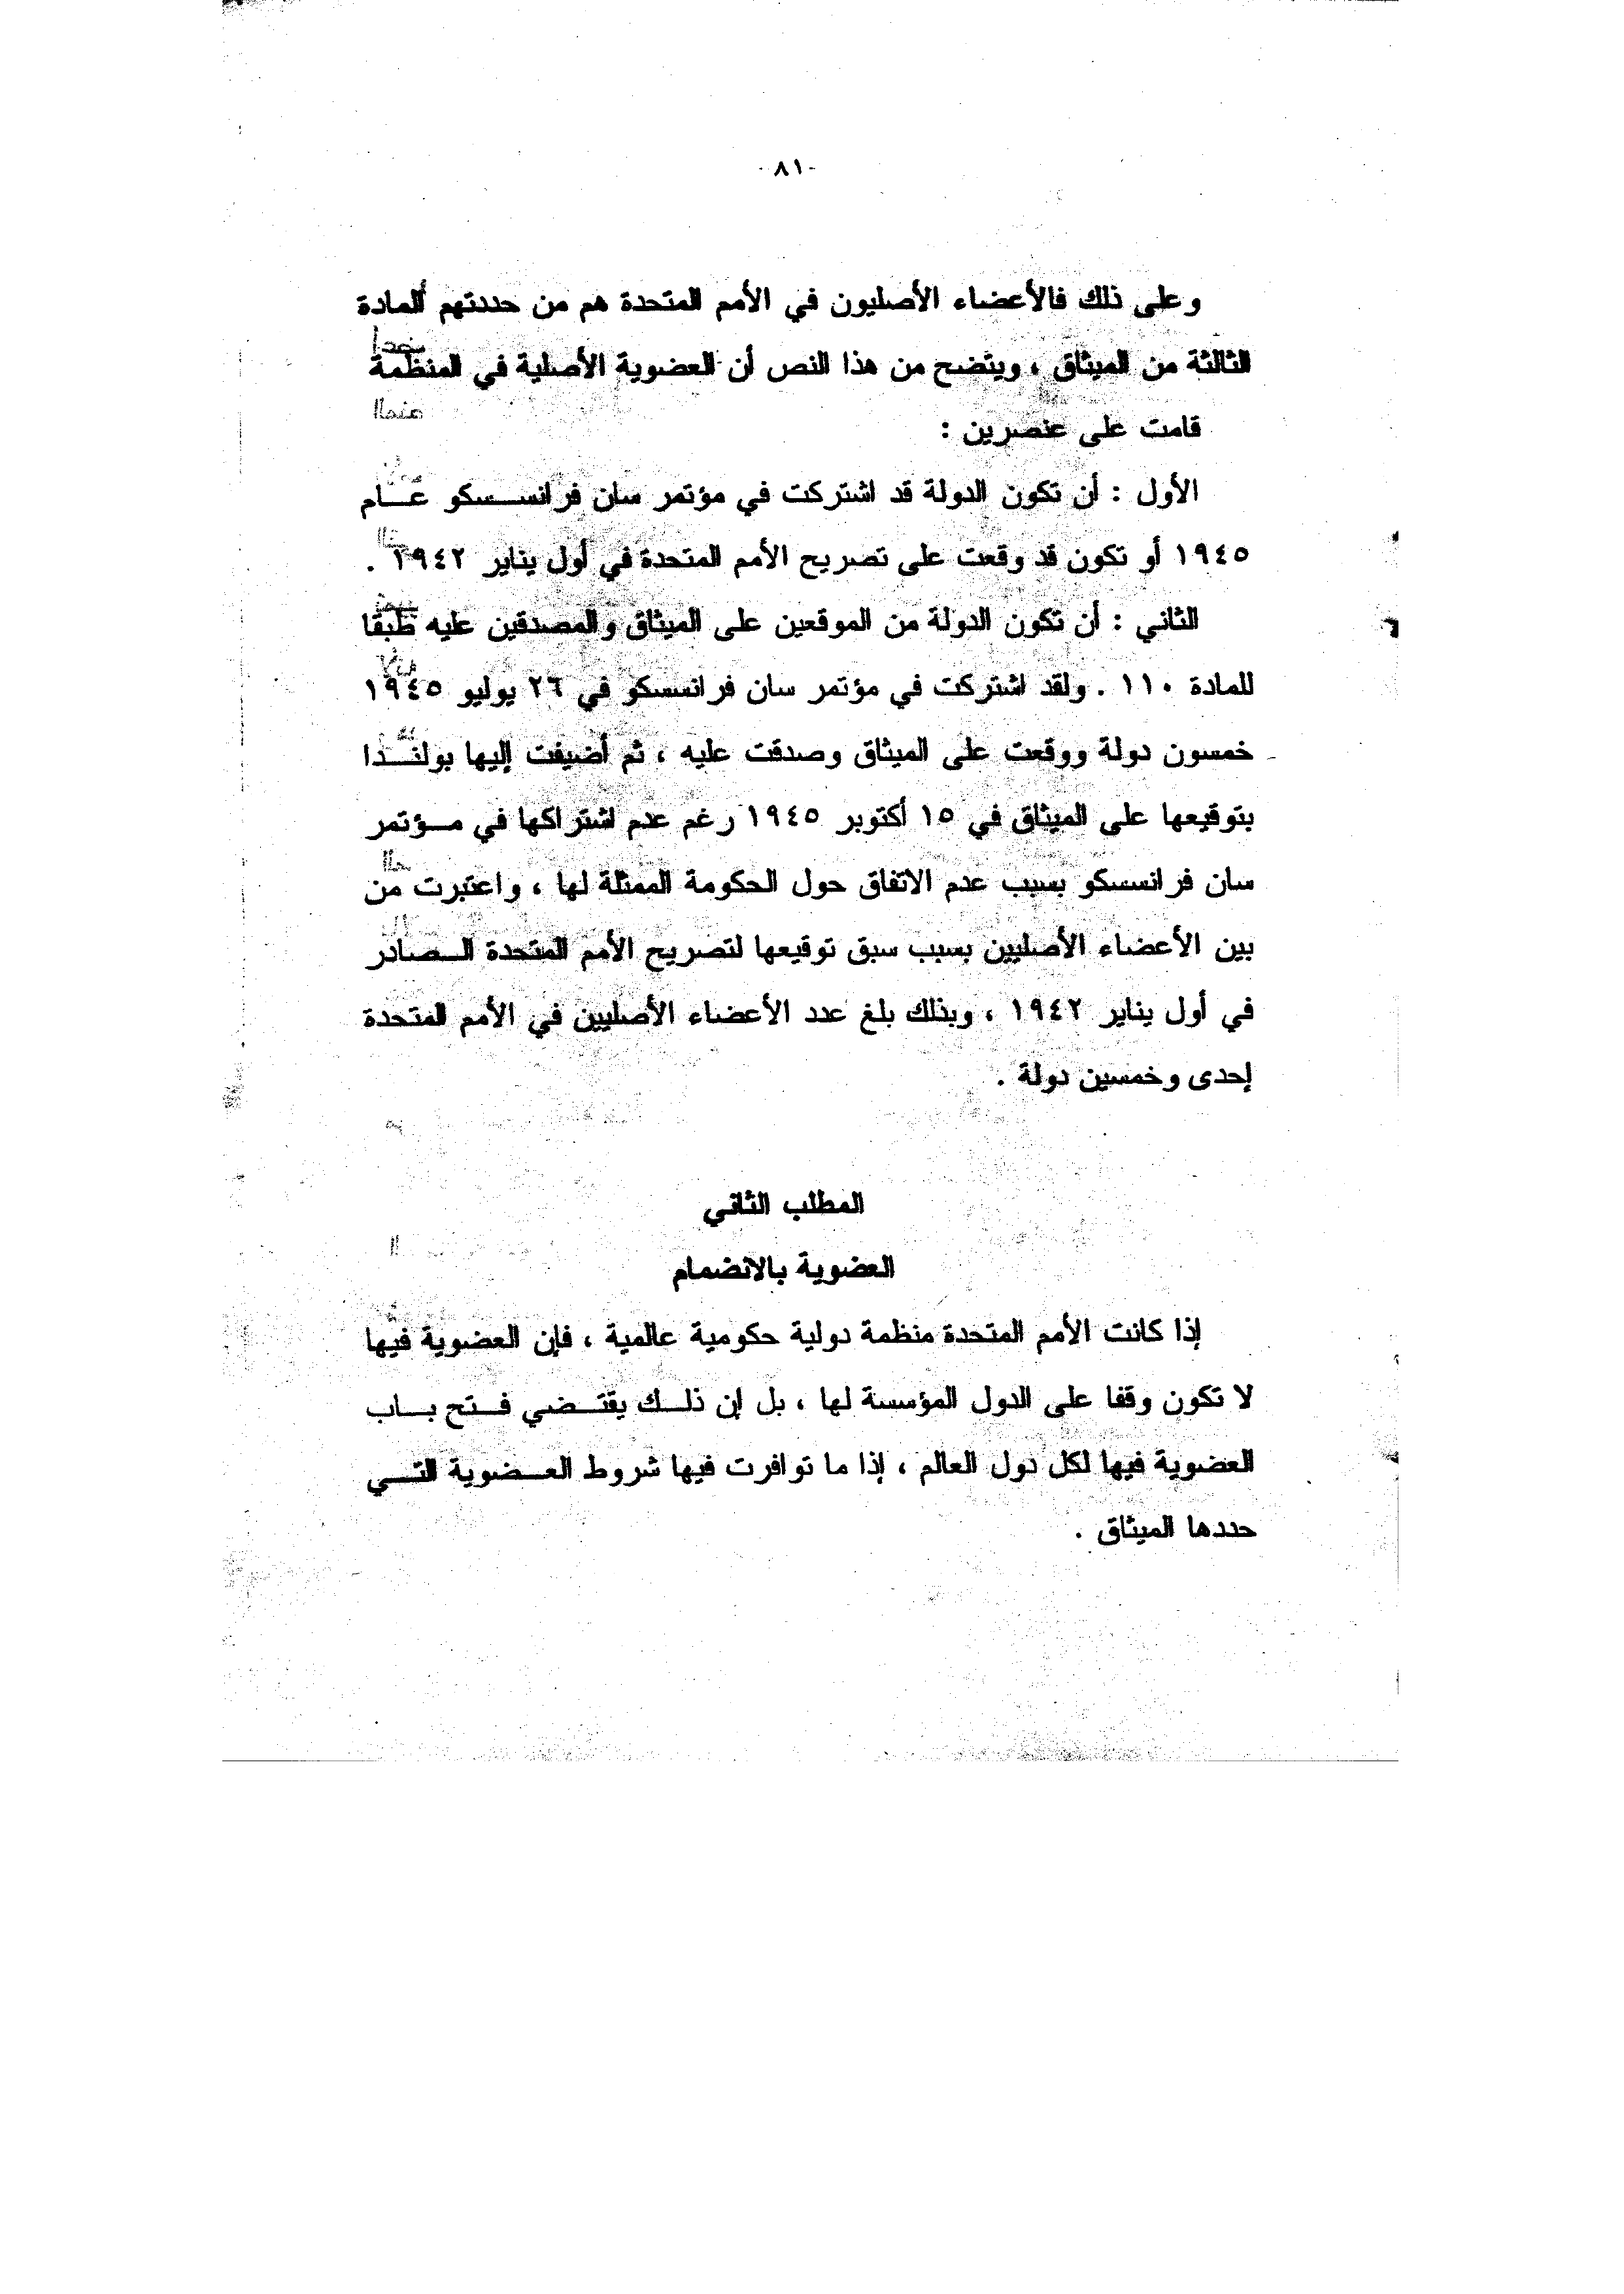 -٨١-
وعلى ذلك فالأعضاء الأصليون في الأمم المتحدة هم من حددتهم المادة
الثالثة من الميثاق ، ويتضح من هذا النص أن العضوية الأصلية في المنظمة
قامت على عنصرين :
الأول : أن تكون الدولة قد اشتركت في مؤتمر سان فرانســسكو عــام
١٩٤٥ أو تكون قد وقعت على تصريح الأمم المتحدة في أول يناير ١٩٤٢ .
الثاني : أن تكون الدولة من الموقعين على الميثاق والمصدقين عليه طبقا
للمادة ١١٠ . ولقد اشتركت في مؤتمر سان فرانسسكو في ٢٦ يوليو ١٩٤٥
خمسون دولة ووقعت على الميثاق وصدقت عليه ، ثم أضيفت إليها بولنــدا
بتوقيعها على الميثاق في ١٥ أكتوبر ١٩٤٥ رغم عدم اشتراكها في مــؤتمر
سان فرانسسكو بسبب عدم الاتفاق حول الحكومة الممثلة لها ، واعتبرت من
بين الأعضاء الأصليين بسبب سبق توقيعها لتصريح الأمم المتحدة الــصادر
في أول يناير ١٩٤٢ ، وبذلك بلغ عدد الأعضاء الأصليين في الأمم المتحدة
إحدى وخمسين دولة .
المطلب الثاني
العضوية بالانضمام
إذا كانت الأمم المتحدة منظمة دولية حكومية عالمية ، فإن العضوية فيها
لا تكون وقفا على الدول المؤسسة لها ، بل إن ذلــك يقتــضي فــتح بــاب
العضوية فيها لكل دول العالم ، إذا ما توافرت فيها شروط العــضوية التــي
حددها الميثاق .